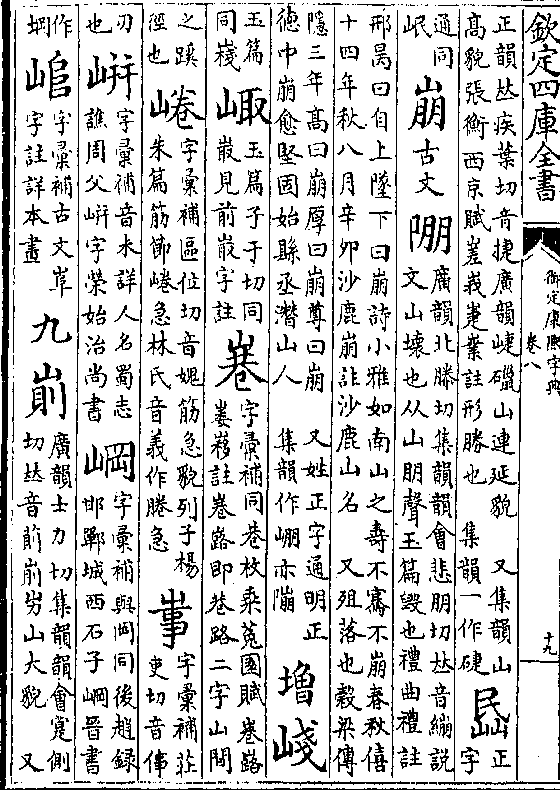 欽定四庫全書
御定康熙字典
卷八
十九
正韻𠀤疾葉切音捷廣韻崨礏山連延貌 又集韻山
高貌張衡西京賦嵳峩崨嶪註形勝也 集韻一作䃎
正
字
通同
岷
崩
古文
廣韻北滕切集韻韻會悲朋切𠀤音繃說
文山壞也从山朋聲玉篇毀也禮曲禮註
邢昺曰自上墜下曰崩詩小雅如南山之壽不騫不崩春秋僖
十四年秋八月辛卯沙鹿崩註沙鹿山名 又殂落也穀梁傳
隱三年高曰崩厚曰崩尊曰崩 又姓正字通明正
德中崩愈堅固始縣丞潛山人 集韻作㟟亦
增
玉篇
同
玉篇子于切同
見前 字註
字彙補同巷枚乗菟園賦 路
蔞嵺註 路即巷路二字山間
之蹊
徑也
字彙補區位切音媿筋急貌列子楊
朱篇筋節 急林氏音義作腃急
字彙補莊
吏切音倳
刃
也
字彙補音未詳人名蜀志
譙周父 字榮始治尚書
字彙補與岡同後趙錄
邯鄲城西石子 晉書
作
堈
字彙補古文
字註詳本畫
九
崱
廣韻士力切集韻韻會寔側
切𠀤音萴崱屴山大貌 又